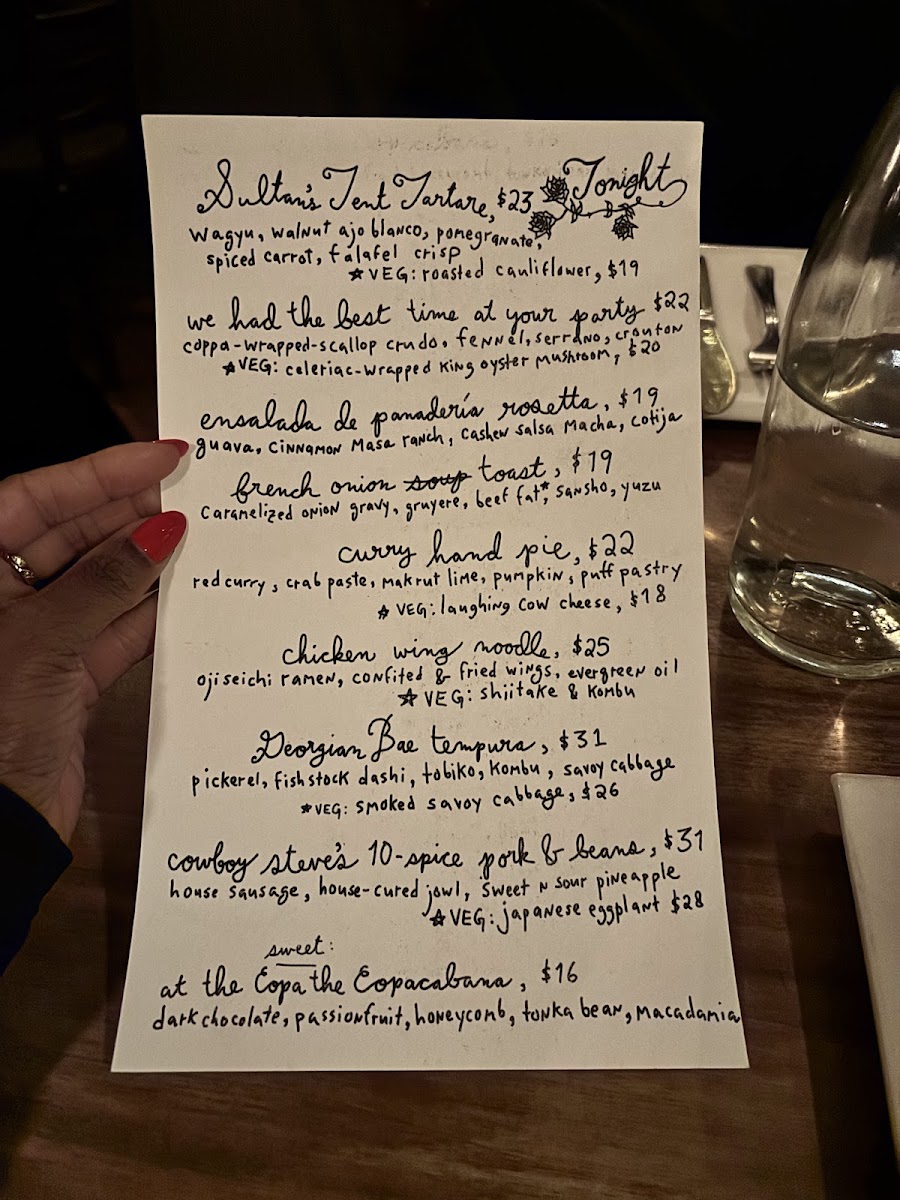 Sultan's Tent Tartare, $23
Tonight
wagyu, walnut ajo blanco, pomegranate,
spiced carrot, falafel crisp
★VEG: roasted cauliflower, $19
we had the best time at your party $22
coppa-wrapped-scallop crudo, fennel, serrano, crouton
★VEG: celeriac-wrapped King oyster mushroom, $20
ensalada de panadería rosetta, $19
guava, cinnamon masa ranch, cashew salsa macha, cotija
french onion soup toast, $19
caramelized onion gravy, gruyere, beef fat*, sansho, yuzu
curry hand pie, $22
red curry, crab paste, makrut lime, pumpkin, puff pastry
★VEG: laughing cow cheese, $18
chicken wing noodle, $25
ojiseichi ramen, confited & fried wings, evergreen oil
★VEG: shiitake & kombu
Georgian Bae tempura, $31
pickerel, fish stock dashi, tobiko, kombu, savoy cabbage
★VEG: smoked savoy cabbage, $26
cowboy steve's 10-spice pork & beans, $31
house sausage, house-cured jowl, sweet n sour pineapple
★VEG: japanese eggplant $28
sweet:
at the Copa the Copacabana, $16
dark chocolate, passionfruit, honeycomb, tonka bean, macadamia